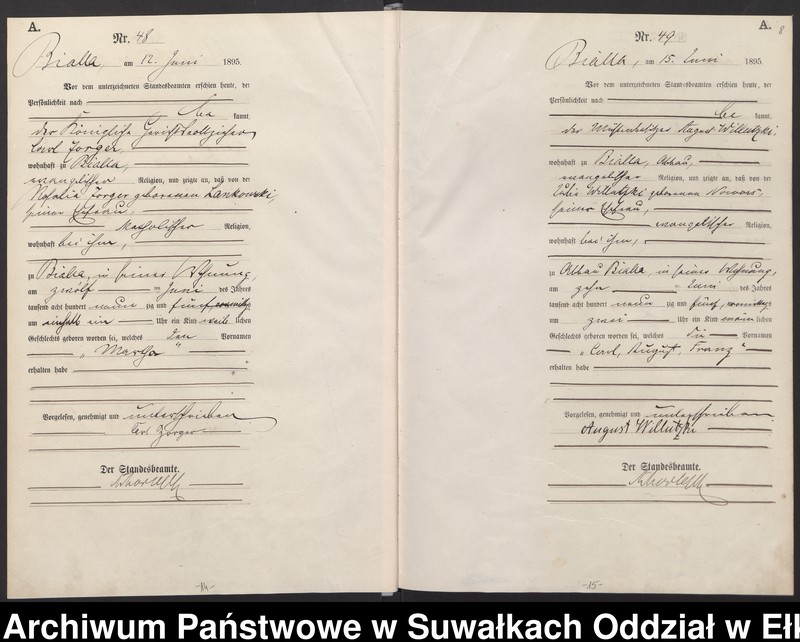 A.
Nr. 48
Bialla, am 12. Juni 1895.
Vor dem unterzeichneten Standesbeamten erschien heute, der
Persönlichkeit nach
be kannt,
der Königliche Gerichtsvollzieher
Carl Jorger,
wohnhaft zu Bialla,
evangelischer Religion, und zeigte an, daß von der
Rosalia Jorger geborenen Lankowski,
seiner Ehefrau,
katholischer Religion,
wohnhaft bei ihm,
zu Bialla, in seiner Wohnung,
am zwölf ten Juni des Jahres
tausend acht hundert neun zig und fünf
um einhalb ein Uhr ein Kind weib lichen
Geschlechts geboren worden sei, welches den Vornamen
„Martha"
erhalten habe
Vorgelesen, genehmigt und unterschrieben
Carl Jorger
Der Standesbeamte.
-14-
A. 8
Nr. 49
Bialla, am 15. Juni 1895.
Vor dem unterzeichneten Standesbeamten erschien heute, der
Persönlichkeit nach
be kannt,
der Mühlenbesitzer August Willutzki,
wohnhaft zu Bialla, Abbau,
evangelischer Religion, und zeigte an, daß von der
Willutzki geborenen
seiner Ehefrau,
evangelischer Religion,
wohnhaft bei ihm,
zu Abbau Bialla, in seiner Wohnung,
am zehn ten Juni des Jahres
tausend acht hundert neun zig und fünf,
um zwei Uhr ein Kind männ lichen
Geschlechts geboren worden sei, welches die Vornamen
„Carl, August, Franz"
erhalten habe
Vorgelesen, genehmigt und unterschrieben
August Willutzki
Der Standesbeamte.
-15-
Archiwum Państwowe w Suwałkach Oddział w Eł